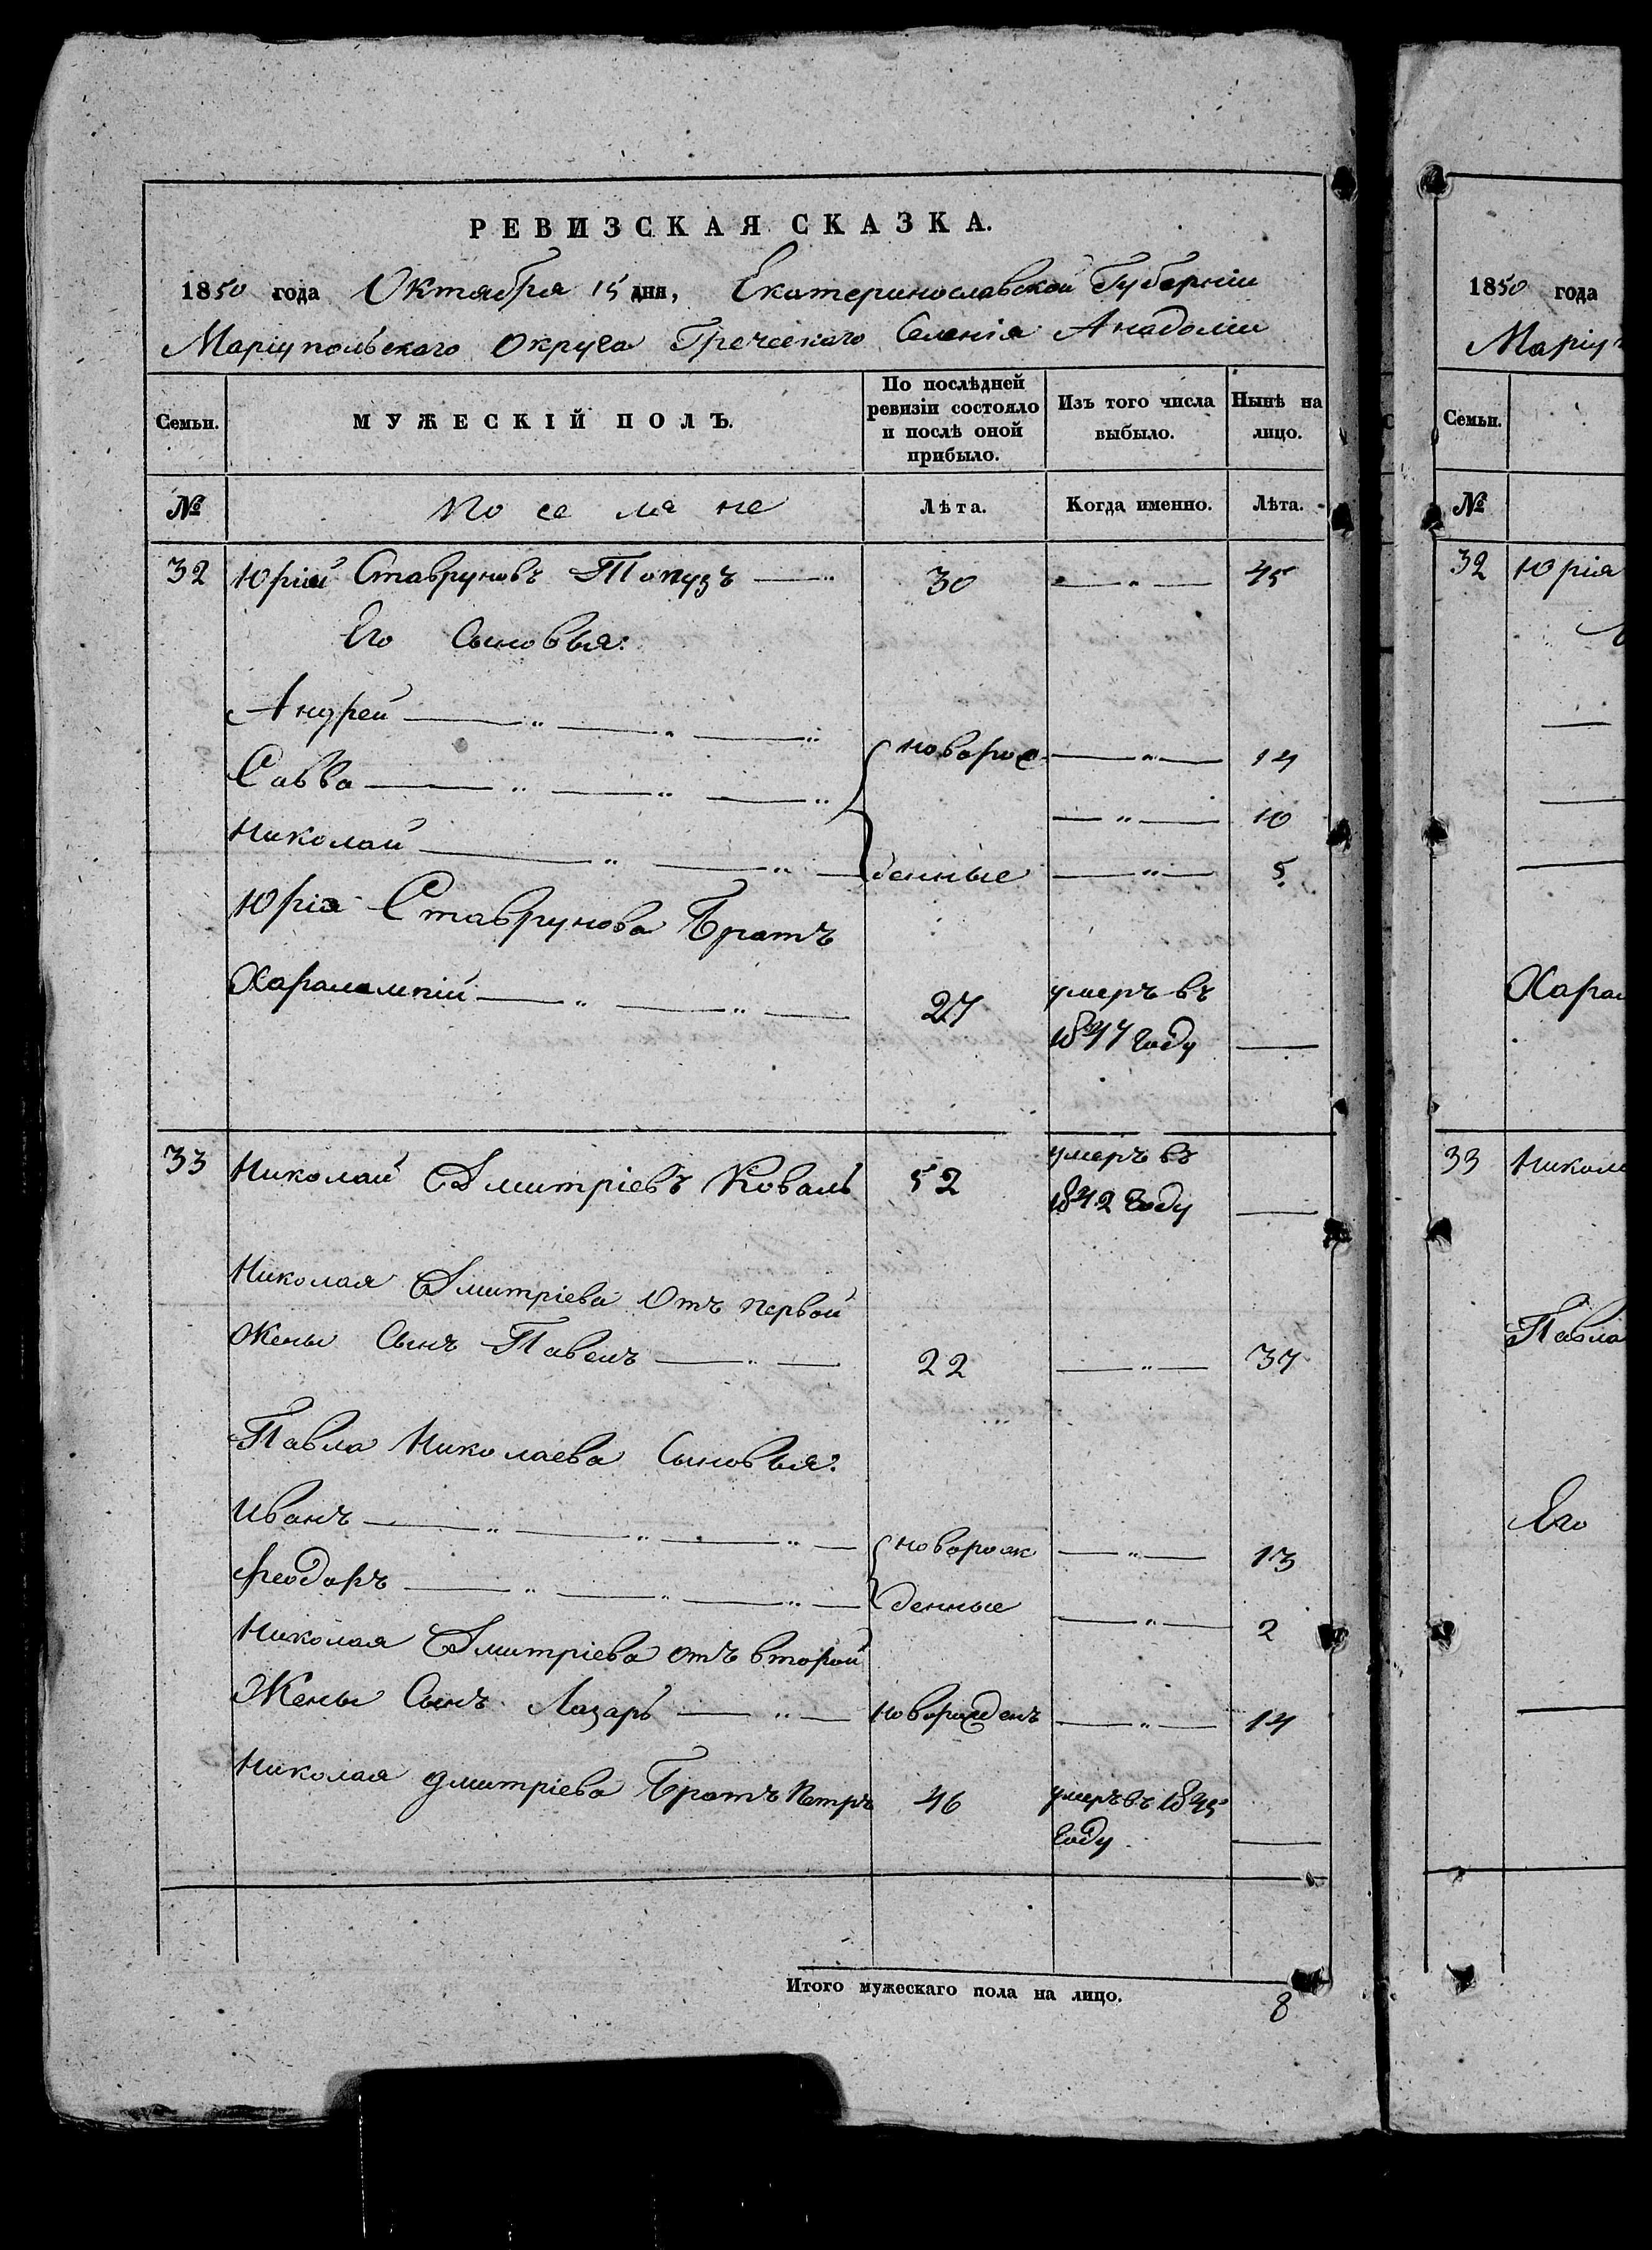 РЕВИЗСКАЯ СКАЗКА.
1850 года Октября 15 дня, Екатеринославской Губерніи
Маріупольскаго Округа Греческаго Селенія Анадоліи
Семьи. МУЖЕСКІЙ ПОЛЪ. По послѣдней ревизіи состояло и послѣ оной прибыло. Изъ того числа выбыло. Нынѣ на лицо.
№ Поселяне Лѣта. Когда именно. Лѣта.
32 Юрій Ставруновъ Топузъ — „ 30 — „ — 45
Его Сыновья:
Андрей — „ — „ — „ новорож — „ — 14
Савва — „ — „ — „ — „ — 10
Николай — „ — „ — денные — „ — 5
Юрія Ставрунова Братъ
Харалампій — „ — „ — 27 умеръ въ
1847 году —
33 Николай Дмитріевъ Коваль 52 умеръ въ
1842 году —
Николая Дмитріева Отъ первой
Жены Сынъ Павелъ — „ — 22 — „ — 37
Павла Николаева Сыновья:
Иванъ — „ — „ — „ — новорож — „ — 13
Феодоръ — „ — „ — „ — денные — „ — 2
Николая Дмитріева отъ второй
Жены Сынъ Лазарь — „ — новорожденъ — „ — 14
Николая Дмитріева Братъ Петръ 46 умеръ въ 1845
году —
Итого мужескаго пола на лицо. 8
1850 года
Маріу
Семьи.
№
32 Юрія
Харал
33 Никол
Павла
Его